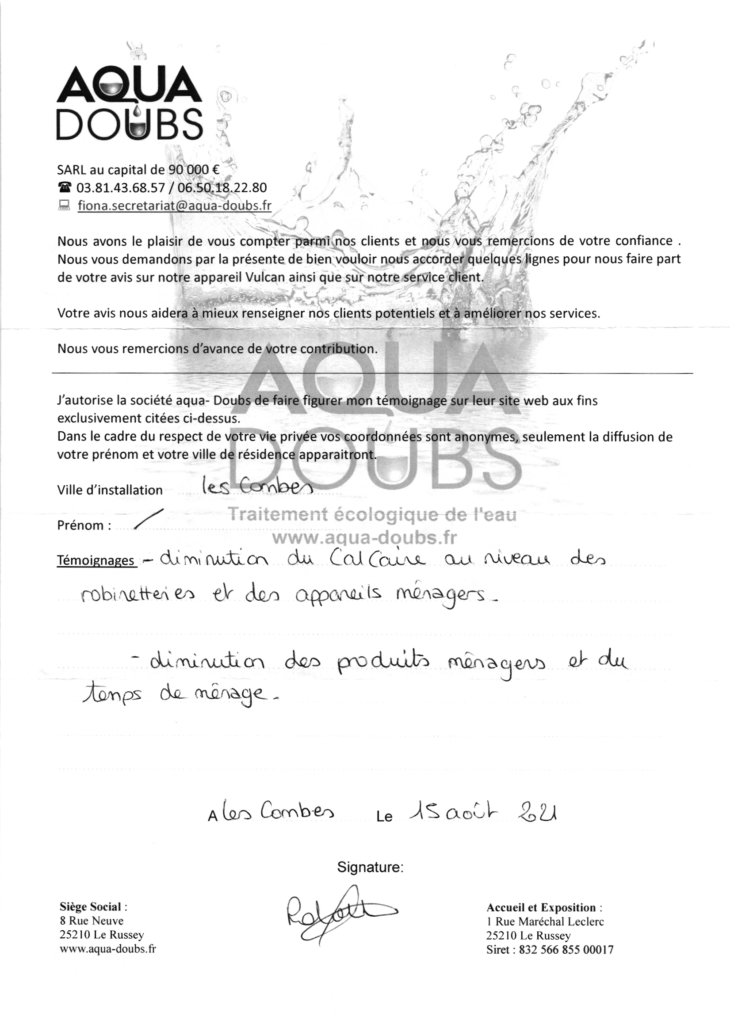 AQUA
DOUBS
SARL au capital de 90 000 €
☎ 03.81.43.68.57 / 06.50.18.22.80
fiona.secretariat@aqua-doubs.fr
Nous avons le plaisir de vous compter parmi nos clients et nous vous remercions de votre confiance .
Nous vous demandons par la présente de bien vouloir nous accorder quelques lignes pour nous faire part
de votre avis sur notre appareil Vulcan ainsi que sur notre service client.
Votre avis nous aidera à mieux renseigner nos clients potentiels et à améliorer nos services.
Nous vous remercions d'avance de votre contribution.
AQUA
J'autorise la société aqua- Doubs de faire figurer mon témoignage sur leur site web aux fins
exclusivement citées ci-dessus.
Dans le cadre du respect de votre vie privée vos coordonnées sont anonymes, seulement la diffusion de
votre prénom et votre ville de résidence apparaitront.
DOUBS
Ville d'installation les Combes
Traitement écologique de l'eau
Prénom : /
www.aqua-doubs.fr
Témoignages - diminution du Calcaire au niveau des
robinetteries et des appareils ménagers.
- diminution des produits ménagers et du
temps de ménage.
A les Combes Le 15 août 2021
Signature:
Siège Social :
8 Rue Neuve
25210 Le Russey
www.aqua-doubs.fr
Accueil et Exposition :
1 Rue Maréchal Leclerc
25210 Le Russey
Siret : 832 566 855 00017